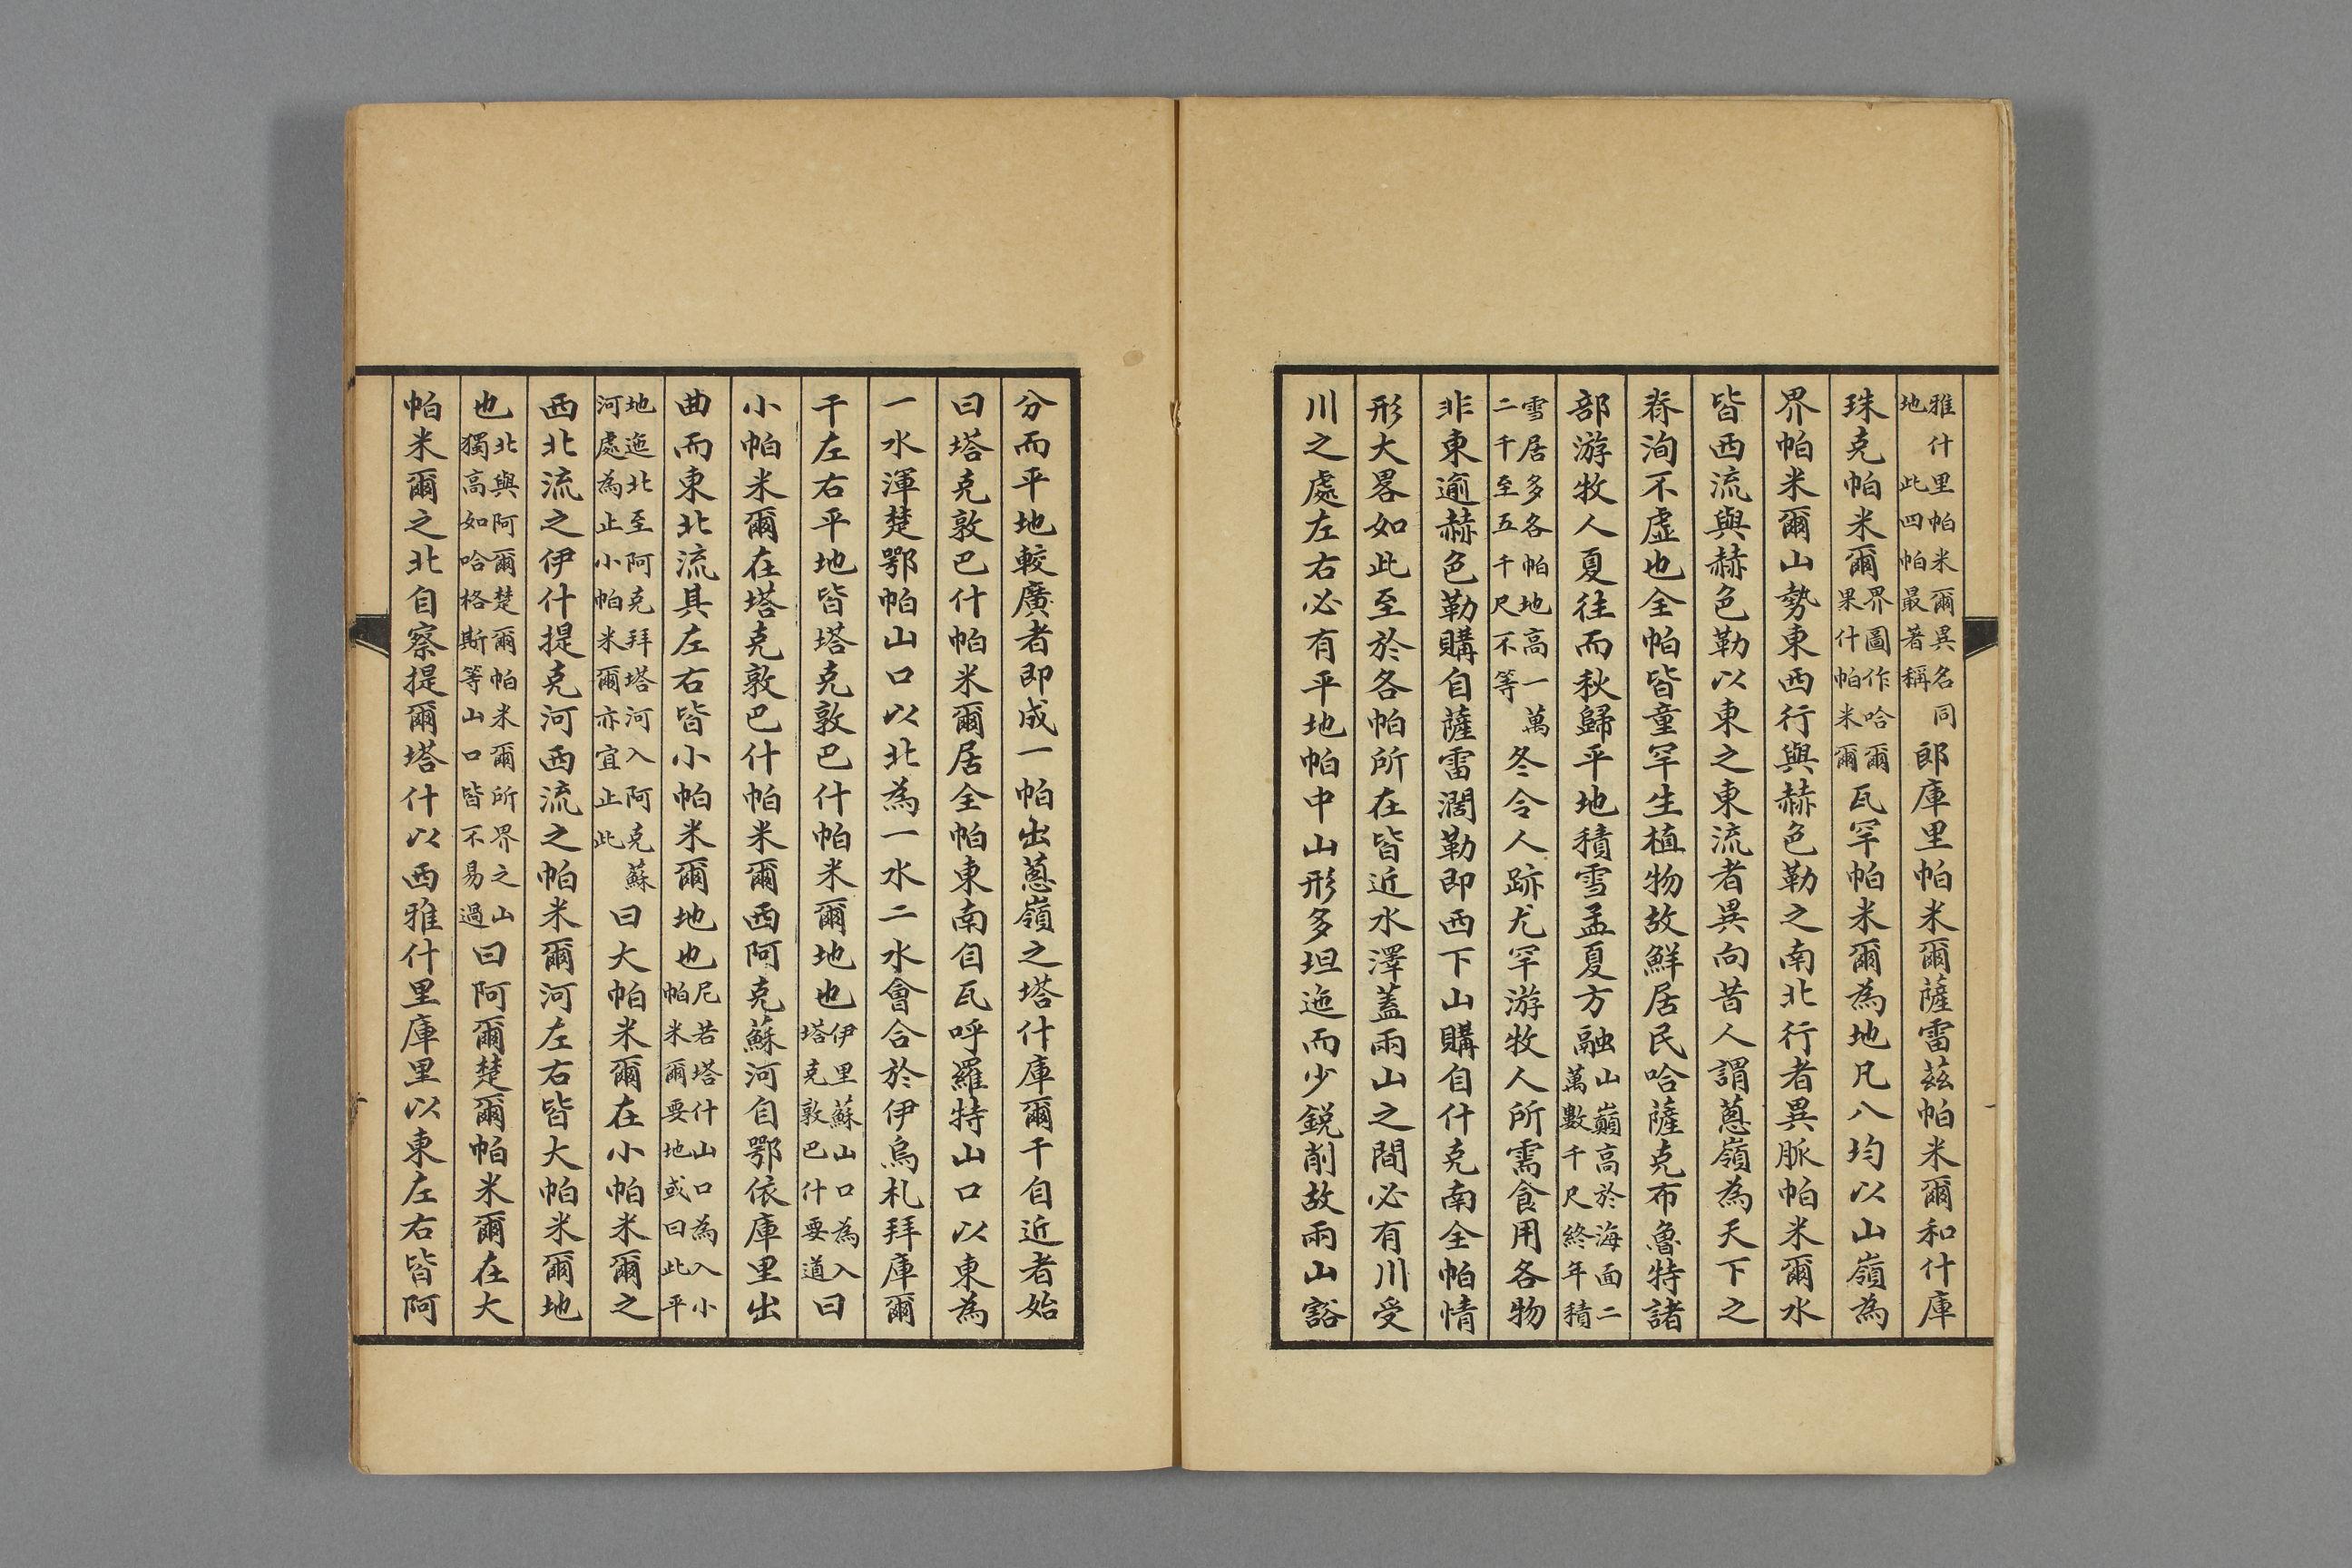 雅什里帕米爾異名同地此四帕最著稱郎庫里帕米爾薩雷茲帕米爾和什庫
珠克帕米爾界圖作哈爾果什帕米爾瓦罕帕米爾為地凡八均以山嶺為
界帕米爾山勢東西行與赫色勒之南北行者異脈帕米爾水
皆西流與赫色勒以東之東流者異向昔人謂蔥嶺為天下之
脊洵不虛也全帕皆童罕生植物故鮮居民哈薩克布魯特諸
部游牧人夏往而秋歸平地積雪孟夏方融山巔高於海面二萬數千尺終年積
雪居多各帕地高一萬二千至五千尺不等冬令人跡尤罕游牧人所需食用各物
非東逾赫色勒購自薩雷濶勒即西下山購自什克南全帕情
形大畧如此至於各帕所在皆近水澤蓋兩山之間必有川受
川之處左右必有平地帕中山形多坦迤而少銳削故兩山豁
分而平地較廣者即成一帕出蔥嶺之塔什庫爾干自近者始
曰塔克敦巴什帕米爾居全帕東南自瓦呼羅特山口以東為
一水渾楚鄂帕山口以北為一水二水會合於伊烏札拜庫爾
干左右平地皆塔克敦巴什帕米爾地也伊里蘇山口為入塔克敦巴什要道曰
小帕米爾在塔克敦巴什帕米爾西阿克蘇河自鄂依庫里出
曲而東北流具左右皆小帕米爾地也尼若塔什山口為入小帕米爾要地或曰此平
地迤北至阿克拜塔河入阿克蘇河處為止小帕米爾亦宜止此曰大帕米爾在小帕米爾之
西北流之伊什提克河西流之帕米爾河左右皆大帕米爾地
也北與阿爾楚爾帕米爾所界之山獨高如哈格斯等山口皆不易過曰阿爾楚爾帕米爾在大
帕米爾之北自察提爾塔什以西雅什里庫里以東左右皆阿